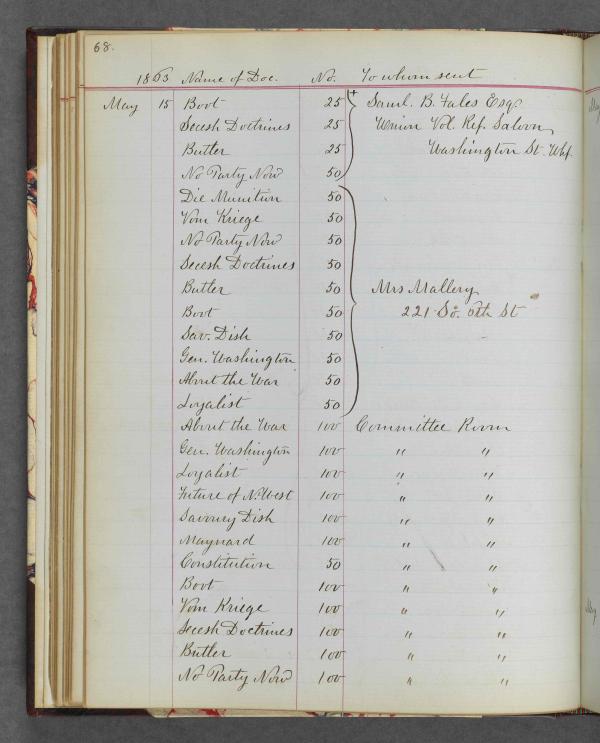 68.
1863 Name of Doc. No. To whom sent
May 15 Boot 25 + Saml. B. Fales Esqr
Secesh Doctrines 25 Union Vol. Ref. Saloon
Butler 25 Washington St. Whf.
No Party Now 50
Die Munition 50
Vom Kriege 50
No Party Now 50
Secesh Doctrines 50
Butler 50 Mrs Mallery
Boot 50 221 So. 6th St
Sav. Dish 50
Gen. Washington 50
About the War 50
Loyalist 50
About the War 100 Committee Room
Gen. Washington 100 " "
Loyalist 100 " "
Future of N. West 100 " "
Savoury Dish 100 " "
Maynard 100 " "
Constitution 50 " "
Boot 100 " "
Vom Kriege 100 " "
Secesh Doctrines 100 " "
Butler 100 " "
No Party Now 100 " "